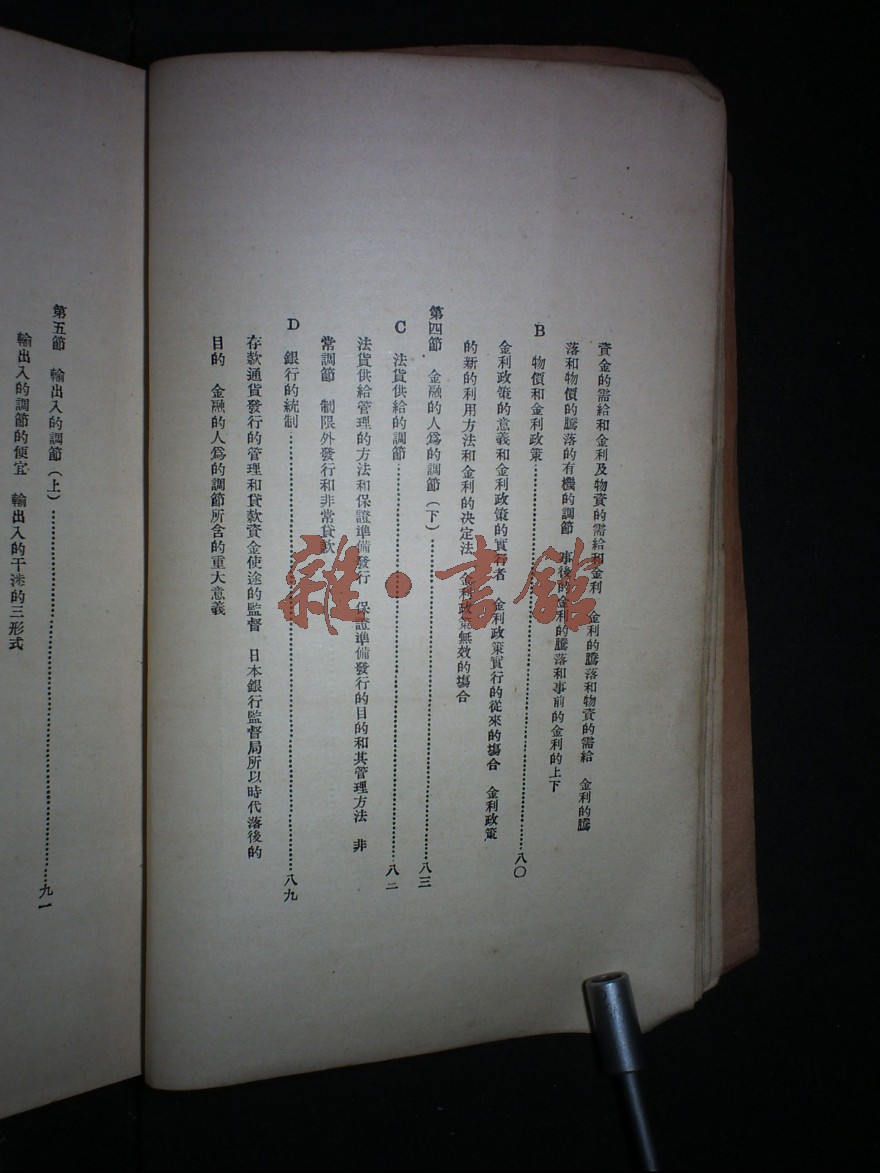 資金的需給和金利及物資的需給和金利　金利的騰落和物資的需給　金利的騰
落和物價的騰落的有機的調節　事後的金利的騰落和事前的金利的上下
B　物價和金利政策…………八〇
金利政策的意義和金利政策的實行者　金利政策實行的從來的場合　金利政策
的新的利用方法和金利的決定法　金利政策無效的場合
第四節　金融的人爲的調節（下）…………八三
C　法貨供給的調節…………八二
法貨供給管理的方法和保證準備發行　保證準備發行的目的和其管理方法　非
常調節　制限外發行和非常貸款
D　銀行的統制…………八九
存款通貨發行的管理和貸款資金使途的監督　日本銀行監督局所以時代落後的
目的　金融的人爲的調節所含的重大意義
第五節　輸出入的調節（上）…………九一
輸出入的調節的便宜　輸出入的干涉的三形式
雜·書館